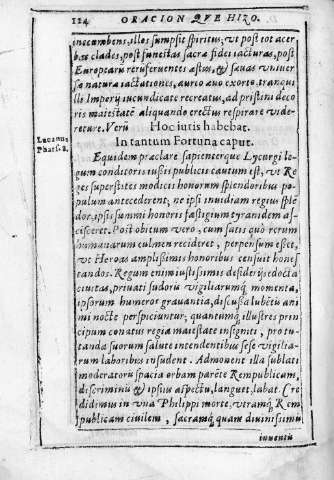 124 ORACION QVE HIZO.
incumbens, illos sumpsit spiritus, vt post tot acer-
bas clades, post funestas sacræ fidei iacturas, post
Europæarū reruferuentes æstus, & sæuas vniuer
sæ naturæ iactationes, aureo æuo exorto, tranqui
llo Imperij iucunditate recreatus, ad pristini deco
ris maiestatē aliquando erectius respirare vide-
retur. Verū Hoc iuris habebat.
Lucanus In tantum Fortuna caput.
Phars. 8. Equidem præclare sapienterque Lycurgi le-
gum conditoris iussu publicis cautum est, vt Re
ges superstites modicis honorum splendoribus po
pulum antecederent, ne ipsi inuidiam regius splē
dor, ipsi summi honoris fastigium tyranidem as-
cisceret. Post obitum vero, cum satis quò rerum
humanarum culmen recideret, perpensum esset,
vt Heroas amplissimis honoribus censuit hones
tandos. Regum enim iustissimis desiderijs edocta
ciuitas, priuati sudoris vigiliarumq́; momenta,
ipsorum humeros grauantia, discussa lubēti ani
mi nocte perspiciuntur, quantumq́; illustres prin
cipum conatus regia maiestate insigniti, pro tu-
tanda suorum salute intendentibus sese vigilia-
rum laboribus insudent. Admonent illa sublati
moderatoris spacia orbam parēte Rempublicam,
discriminis & ipsius aspectu, languet, labat. Cre
didimus in vna Philippi morte, vtramq́; Rem
publicam ciuilem, sacramq́; quam diuinissimū
inuentū